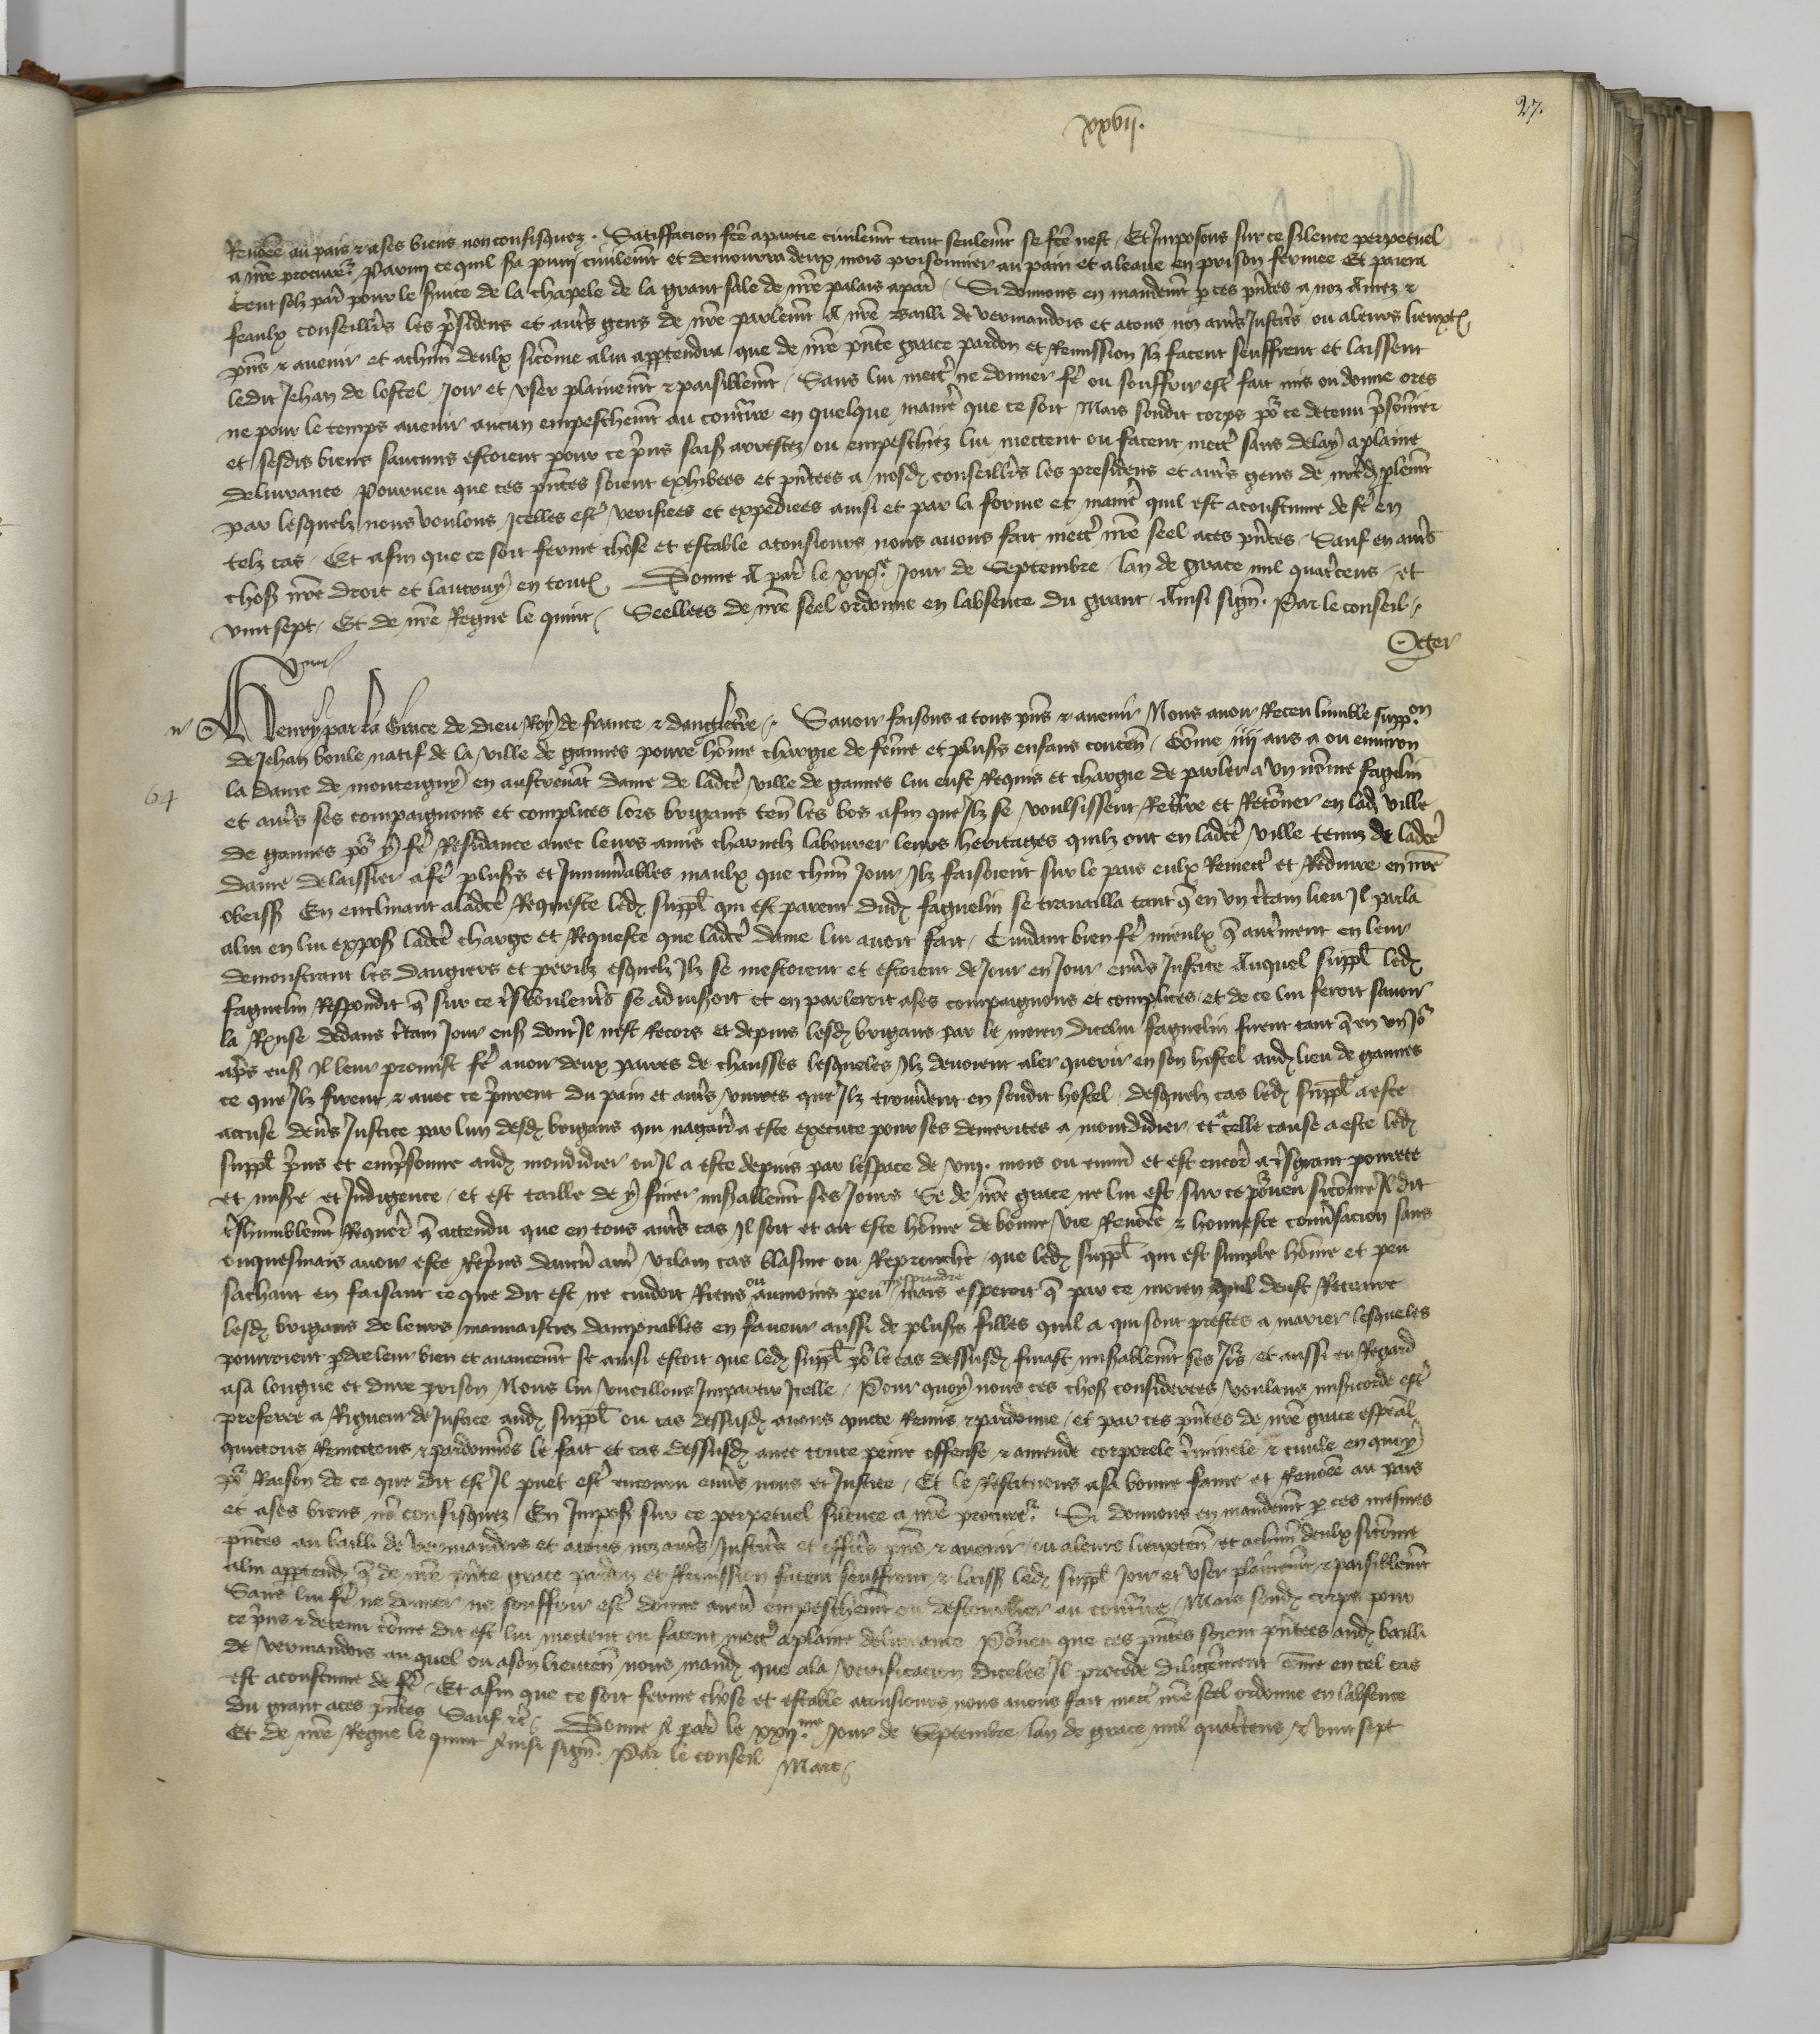 27.
xxvij.
Renõee au pais & a ses biens non confisquez. Satisfacion fcẽ a partie civilemt tant seulemt se fcẽ nest Et Imposons sur ce silence perpetuel
a nr̃e procur̃ Parmi ce quil sa puni civilemt et demourra deux mois prisonnier au pain et a leaue en prison fermee Et paiera
Cent solz par̃ pour le svice de la chapele de la grant sale de nr̃e palais a par̃ Si donnons en mandemt p ces pñtes a noz Amez &
feaulx conseillr̃s les p̃sidens et autr̃s gens de nr̃e parlemt A nr̃e Bailli de vermandois et a tous noz autr̃s Justic̃rs ou a leurs lieuxten̄
pñs & avenir et a chũn deulx sicõme a lui appartendra que de nr̃e pñte grace pardon et Remission Ilz facent seuffrent et laissent
ledit Jehan de lostel Joir et user plainemt & paisiblemt Sans lui mettr̃ ne donner fẽ ou souffrir estr̃ fait mis ou donne ores
ne pour le temps avenir aucun empeschemt au contr̃re en quelque manr̃e que ce soit Mais sondit corps po' ce detenu p̃sõnier
et sesdis biens saucuns estoient pour ce p̃ns saisz arrestez ou empeschiez lui mettent ou facent mettr̃ sans delay a plaine
delivrance Pourveu que ces pñtes soient exhibees et pñtees a nosd conseillr̃s les presidens et autr̃s gens de nr̃ed plemt
par lesquelz nous voulons Icelles estr̃ verifiees et expediees ainsi et par la forme et manr̃e quil est acoustume de fẽ en
telz cas Et afin que ce soit ferme chose et estable a tousiours nous avons fait mettr̃ nr̃e seel a ces pñtes Sauf en autr̃s
chosz nr̃e droit et lautruy en toutes Donne A par̃ le jour de Septembre lan de grace mil quatr̃cens et
vint sept Et de nr̃e Regne le quint Seellees de nr̃e seel ordonne en labsence du grant Ainsi sign̄. Par le conseil
Oger
Henry par la Grace de Dieu Roy de france & dangletr̃re Savoir faisons a tous pñs & avenir Nous avoir Receu lumble supp.on
de Jehan boule natif de la ville de gannes povre hõme chargie de fẽme et plusrs enfans conten̄ Cõme iiij ans a ou environ
64
la dame de monteigny en dame de ladcẽ ville de gannes lui eust Requis et chargie de parler a un nõme fagelin
et autr̃s ses compaignons et complices lors brigans ten̄ les bos afin que Ilz se voulsissent Retr̃re et Retõner en lad ville
de gannes po' y fẽ Residance avec leurs amis charnelz labourer leurs heritages quilz ont en ladcẽ ville tenuz de ladcẽ
dame delaissier a fẽ plusrs et Innumr̃ables maulx que chũn Jour Ilz faisoient sur le pais eulx Remettr̃ et Reduire en nr̃e
obeissz En enclinant a ladcẽ Requeste led suppl̃ qui est parent dud faguelin se travailla tant q̃ en un c̃tain lieu Il parla
a lui en lui exposz ladcẽ charge et Requeste que ladcẽ dame lui avoit fait Cuidant bien fẽ mieulx q̃ autr̃ment en leur
demonstrant les dangiers et perilz esquelz Ilz se mestoient et estoient de Jour en Jour env̄s Justice Auquel suppl̃ led
faguelin Respondit q̃ sur ce tr̃s voulentr̃s se adviseroit et en parleroit a ses compaignons et complices et de ce lui feroit savoir
la Rn̄se dedans c̃tain Jour ensz dont Il nest Recors et depuis lesd brigans par le moien dicelui faguelin firent tant q̃ en un Jo'
apr̃s ensz Il leur promist fẽ avoir deux paires de chausses lesqueles Ilz devoient aler querir en son hostel aud lieu de gannes
ce que Ilz firent & avec ce p̃nrent du pain et autr̃s vivres que Ilz trouvr̃ent en sondit hostel Desquelz cas led suppl̃ a este
accuse dev̄s Justice par lun desd brigans qui nagair̃ a este execute pour ses demerites a mondidier et a telle cause a este led
suppl̃ p̃ns et emp̃sonne aud mondidier ou Il a este depuis par lespace de viij. mois ou envir̃ et est encor̃ a tr̃s grant povrete
et misz̃e et Indigence et est taille de y finer misz̃ablemt ses Jours Se de nr̃e grace ne lui est sur ce po'veu sicõme Il dit
tr̃s humblemt Requer̃ q̃ attendu que en tous autr̃s cas Il soit et ait este hõme de bonne vie Renõee & honneste convr̃sacion sans
onquesmais avoir este Repr̃ns daucũ autr̃ vilain cas blasme ou Reprouche que led suppl̃ qui est simple hõme et peu
sachant en faisant ce que dit est ne cuidoit Riens ou aumoins peu mesprandre mais esperoit q̃ par ce moien quil deust Retraire
lesd brigans de leurs mauvaistiez dampnables en faveur aussi de plusrs filles quil a qui sont prestes a marier lesqueles
pourroient pdre leur bien et avancemt se ainsi estoit que led suppl̃ po' le cas dessusd finast misz̃ablemt ses Jrs et aussi eu Regard
a sa longue et dure prison Nous lui vueillons Impartir Icelle Pour quoy nous ces chosz considerees voulans misz̃icorde estr̃
preferee a Rigueur de Justice aud suppl̃ ou cas dessusd avons quicte Remis & pardonne et par ces pñtes de nr̃e grace especal
quictons Remettons & pardonnõs le fait et cas dessusd avec toute peine offense & amende corporele cr̃iminele & civile en quoy
po' Raison de ce que dit est Il puet estr̃ encouru env̄s nous et Justice Et le Restituons a sa bonne fame et Renõee au pais
et a ses biens nõ confisquez En Imposz sur ce perpetuel silence a nr̃e procur̃ Si donnons en mandemt p ces mesmes
pñtes au bailli de vermandois et a tous noz autr̃s Justic̃rs et offic̃rs pñs & avenir ou a leurs lieuxten̄ et a chũn deulx sicõme
a lui appartend q̃ de nr̃e pñte grace pardon et Remission facent seuffrent & laissz led suppl̃ Joir et user plainemt & paisiblemt
Sans lui fẽ ne donner ne souffrir estr̃ donne aucũ empeschemt ou destourbier au contr̃re Mais sond corps pour
ce p̃ns & detenu cõme dit est lui mettent ou facent mettr̃ a plaine delivrance Po'veu que ces pñtes soient pñtees aud bailli
de vermandois au quel ou a son lieuten̄ nous mand que a la verificacion diceles Il procede diligẽment cõme en tel cas
est acoustume de fẽ Et afin que ce soit ferme chose et estable a tousiours nous avons fait mettr̃ nr̃e seel ordonne en labsence
du grant a ces pñtes Sauf &c̃ Donne A par̃ le xxijme Jour de Septembre lan de grace mil quatr̃cens & vint sept
Et de nr̃e Regne le quint Ainsi sign̄. Par le conseil Marc